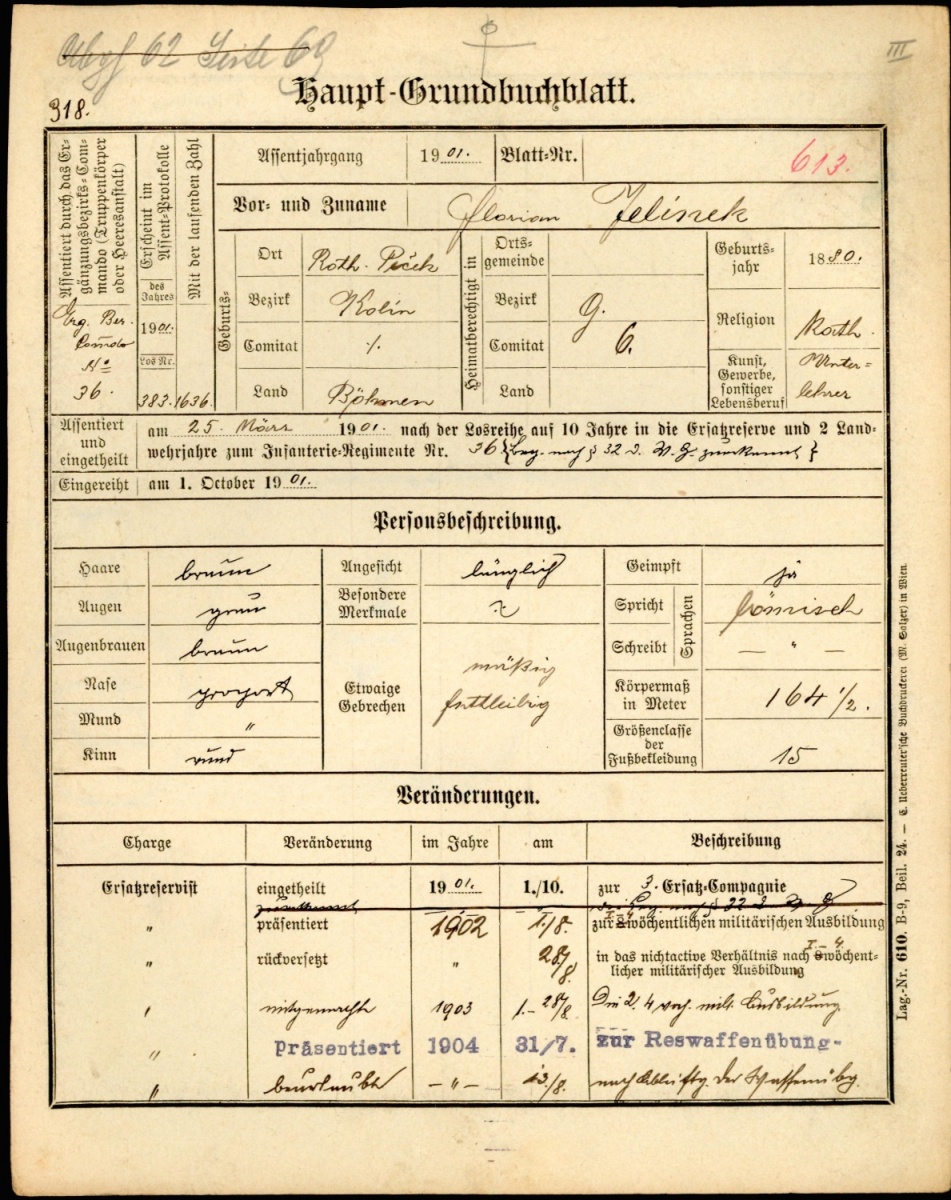 62 Seite 69
III
Haupt-Grundbuchblatt.
318.
Assentiert durch das Ergänzungsbezirks-Commando (Truppenkörper oder Heeresanstalt)
Erg. Bez. Como
No
36.
Erscheint im Assent-Protokolle
des Jahres
1901.
Los Nr.
383.
Mit der laufenden Zahl
1636.
Assentjahrgang 1901. Blatt-Nr. 613.
Vor- und Zuname Florian Jelinek
Geburts-
Ort Roth-Peček
Bezirk Kolin
Comitat ∕.
Land Böhmen
Heimatberechtigt in
Ortsgemeinde
Bezirk g.
Comitat 6.
Land
Geburtsjahr 1880.
Religion Kath.
Kunst, Gewerbe, sonstiger Lebensberuf Unterlehrer
Assentiert und eingetheilt
am 25. März 1901. nach der Losreihe auf 10 Jahre in die Ersatzreserve und 2 Land-
wehrjahre zum Infanterie-Regimente Nr. 36 {Beg. nach § 32 d. W. G. zuerkannt}
Eingereiht am 1. October 1901.
Personsbeschreibung.
Haare braun
Augen grau
Augenbrauen braun
Nase proport
Mund "
Kinn rund
Angesicht länglich
Besondere Merkmale
Etwaige Gebrechen mäßig fettleibig
Geimpft ja
Sprachen
Spricht böhmisch
Schreibt — " —
Körpermaß in Meter 164 1/2.
Größenclasse der Fußbekleidung 15
Veränderungen.
Charge Veränderung im Jahre am Beschreibung
Ersatzreservist eingetheilt 1901. 1./10. zur 3. Ersatz-Compagnie
zuerkannt die Beg. nach § 32 d. W. G
" präsentiert 1902 1./8. zur wöchentlichen militärischen Ausbildung
" rückversetzt " 28/8. in das nichtactive Verhältnis nach I.-4. wöchent-
licher militärischer Ausbildung
" mitgemacht 1903 1.-28/8 Die 2. 4 woch. milit. Ausbildung
" präsentiert 1904 31/7. zur Reswaffenübung-
" beurlaubt — " — 13/8. nach der Waffenübg.
Lag.-Nr. 610. B-9, Beil. 24. — C. Ueberreuter'sche Buchdruckerei (M. Salzer) in Wien.